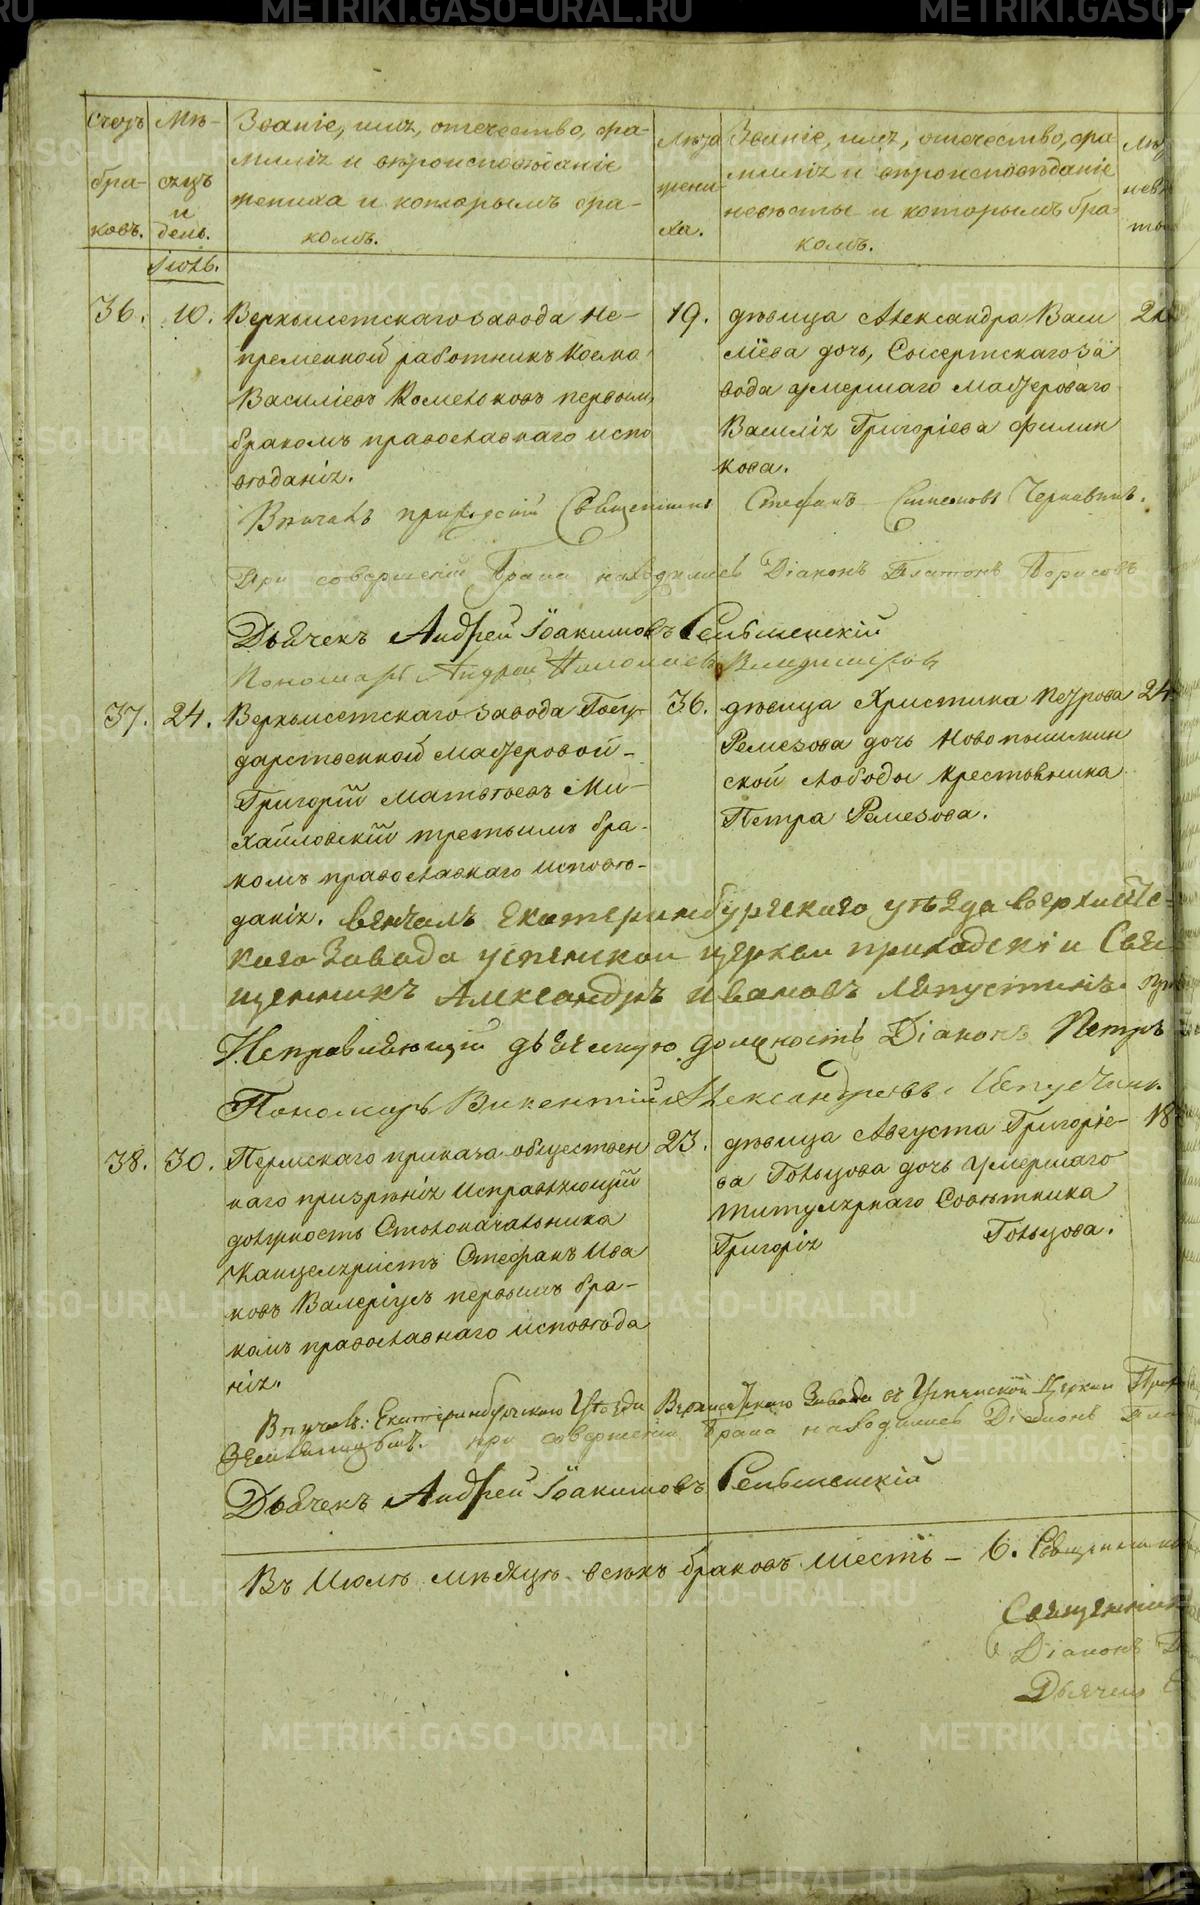 METRIKI.GASO-URAL.RU
Счетъ браковъ.
Мѣсяцъ и день.
Званіе, имя, отечество, фа-
милія и вѣроисповѣданіе
жениха и которымъ бра-
комъ.
Лѣта жени-
ха.
Званіе, имя, отечество, фа-
милія и вѣроисповѣданіе
невѣсты и которымъ бра-
комъ.
Іюль.
36. 10.
Верхъисетскаго завода не-
премѣнной работникъ Косма
Василіевъ Комельковъ первымъ
бракомъ православнаго испо
вѣданія.
19.
дѣвица Александра Васи
ліева дочь, Сысертскаго за
вода умершаго мастероваго
Василія Григоріева Филин
кова.
Вѣнчалъ приходскій Священникъ Стефанъ Симеоновъ Чернавинъ.
При совершеніи Брака находились Діаконъ Платонъ Борисовъ
Дьячекъ Андрей Іоакимовъ Сельменскій
Пономарь Андрей Николаевъ Владимировъ
37. 24.
Верхъисетскаго завода Госу-
дарственной мастеровой
Григорій Матвѣевъ Ми-
хайловскій третьимъ бра-
комъ православнаго исповѣ-
данія.
36.
дѣвица Христина Петрова
Ремезова дочь Новопышмин
ской слободы крестьянина
Петра Ремезова.
24
Вѣнчалъ Екатеринбургскаго уѣзда Верхъисетс-
каго Завода успенской церкви приходскій Свя-
щенникъ Александръ Ивановъ Лѣпустинъ.
Исправляющій дьяческую должность Діаконъ Петръ
Пономарь Викентій Александровъ
38. 30.
Пермскаго приказа обществен
наго призрѣнія исправляющій
должность Столоначальника
Канцеляристъ Стефанъ Ива
новъ Валеріусъ первымъ бра-
комъ православнаго исповѣда
нія.
23.
дѣвица Августа Григоріе-
ва Гольцова дочь умершаго
титулярнаго Совѣтника
Григорія Гольцова.
18
Вѣнчалъ: Екатеринбургскаго Уѣзда Верхисетскаго Завода съ Успенской Церкви
при совершеніи Брака находились Діаконъ
Дьячекъ Андрей Іоакимовъ Сельменскій
Въ Июлѣ мѣсяцѣ всѣхъ браковъ шесть – 6.
Священникъ
Діаконъ
Дьячекъ